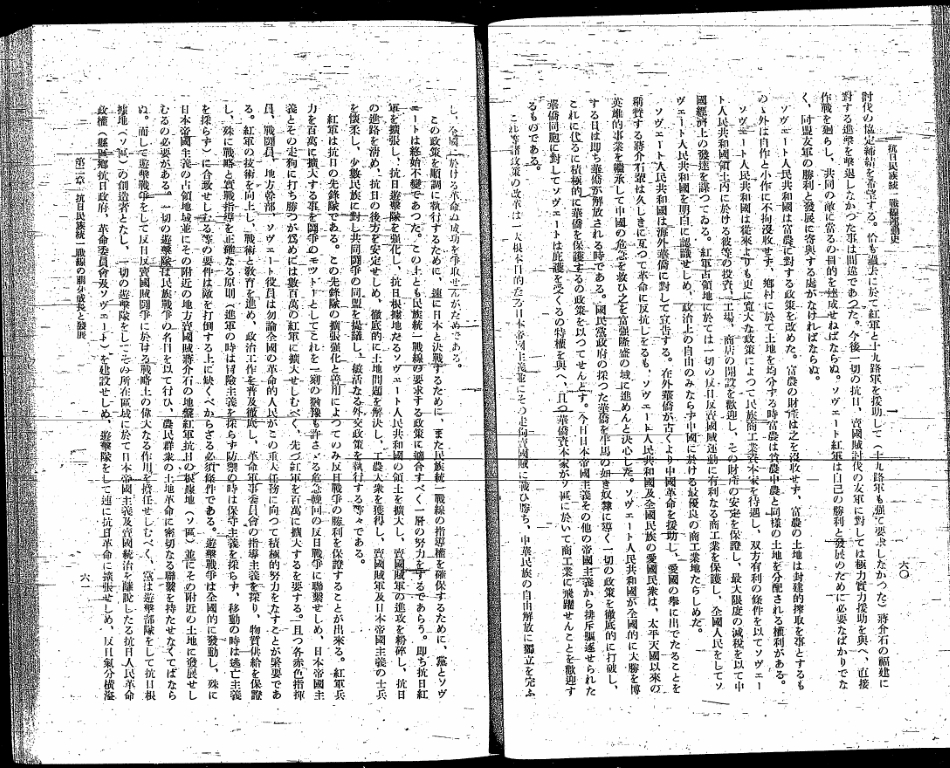 抗日民族統一戰線運動史
六〇
討伐の協定締結を希望する。恰も過去に於て紅軍と十九路軍を援助して(十九路軍も強て要求しなかつた)蔣介石の福建に
對する進擊を擊退しなかつた事は間違であつた。今後一切の抗日、賣國賊討伐の友軍に對しては極力實力援助を與へ、直接
作戰を廻らし、共同の敵に當るの目的を達成せねばならぬ。ソヴェート紅軍は自己の勝利と發展のために必要なばかりでな
く、同盟友軍の勝利と發展に寄與する處がなければならぬ。
ソヴェート人民共和國は富農に對する政策を改めた。富農の財產は之を沒收せず、富農の土地は封建的搾取を事とするも
の、外は自作と小作に不拘沒收せず、鄉村に於て土地を均分する時富農は貧農中農と同樣の土地を分配される權利がある。
ソヴェート人民共和國は從來よりも更に寬大な政策によつて民族商工業資本家を待遇し、双方有利の條件を以てソヴェー
ト人民共和國領土內に於ける彼等の投資、工場、商店の開設を歡迎し、その財產の安定を保證し、最大限度の減稅を以て中
國經濟上の發達を謀つてゐる。紅軍占領地に於ては一切の反日反賣國賊運動に有利なる商工業を保護し、全國人民をしてソ
ヴェート人民共和國を明白に認識せしめ、政治上の自由のみならず中國に於ける最優良の商工業地たらしめた。
ソヴェート人民共和國は海外華僑に對して宣告する。在外華僑が古くより中國革命を援助し、愛國の擧に出でたることを
稱贊する蔣介石輩は久しきに亙つて革命に反抗しをるも、ソヴェート人民共和國及全國民族の愛國民衆は、太平天國以來の
英雄的事業を繼承して中國の危急を救ひ之を富强隆盛の域に進めんと決心した。ソヴェート人民共和國が全國的に大勝を博
する日は卽ち華僑が解放される時である。國民黨政府の採つた華僑を牛馬の如き奴隸に導く一切の政策を徹底的に打破し、
これに代るに積極的に華僑を保護するの政策を以つてせんとす。今日日本帝國主義その他の帝國主義から排斥驅逐せられた
華僑同胞に對してソヴェートは庇護を受くるの特權を與へ、且つ華僑資本家がソ區に於いて商工業に飛躍せんことを歡迎す
るものである。
これ等諸政策の改革は一大根本目的卽ち日本帝國主義並にその走狗賣國賊に戰ひ勝ち、中華民族の自由解放に獨立を完ふ
し、全國に於ける革命の成功を爭取せんがためである。
この政策を順調に擧行するために、速に日本と決戰するために、また民族統一戰線の指導權を確保するために、黨とソヴ
ェートは終始不變であつた。この上とも民族統一戰線の要求する政策に適合すべく一層の努力をするであらう。卽ち抗日紅
軍を擴張し、抗日遊擊隊を强化し、抗日根據地たるソヴェート人民共和國の領土を擴大し、賣國賊軍の進攻を粉碎し、抗日
の進路を淸め、抗日の後方を安定せしめ、徹底的に土地問題を解決し、工農大衆を獲得し、賣國賊軍及日本帝國主義の士兵
を懷柔し、少數民族に對し共同鬪爭の同盟を提議し、敏活なる外交政策を執行する等々である。
紅軍は抗日の先鋒隊である。この先鋒隊の擴張强化と善用によつてのみ反日戰爭の勝利を保證することが出來る。紅軍兵
力を百萬に擴大する事を鬪爭のモットーとしてこれを一刻の猶豫も許さゞる危急挽回の反日戰爭に聯繫せしめ、日本帝國主
義とその走狗に打ち勝つが爲めには數百萬の紅軍に擴大せしむべく、先づ紅軍を百萬に擴大するを要する。且つ各赤色指揮
員、戰鬪員、地方幹部、ソヴェート役員は勿論全國の革命的人民がこの重大任務に向つて積極的努力をなすことが緊要であ
る。紅軍の技術を向上し、戰術と敎育を進め、政治工作を普及徹底し、革命軍事委員會の指導主義を採り、物質供給を保證
し、殊に戰略と實戰指導を正確なる原則(進軍の時は冒險主義を採らず防禦の時は保守主義を採らず、移動の時は逃亡主義
を採らず)に合致せしむる等の要件は敵を打倒する上に缺くべからざる必須條件である。遊擊戰爭は全國的に發動し、殊に
日本帝國主義の占領地域並にその附近の地方賣國賊蔣介石の地盤紅軍抗日の根據地(ソ區)並にその附近の土地に發展せし
むるの必要がある。一切の遊擊隊は抗日人民戰爭の名目を以て行ひ、農民群衆の土地革命に密切なる聯繫を持たせなくてはなら
ぬ。而して遊擊戰爭をして反日反賣國賊鬪爭に於ける戰略上の偉大なる作用を擔任せしむべく、黨は遊擊部隊をして抗日根
據地(ソ區)の創造者となし、一切の遊擊隊をしてその所在區域に於て日本帝國主義及賣國統治を肅淸したる抗日人民革命
政權(縣區鄉抗日政府、革命委員會及ソヴェート)を建設せしめ、遊擊隊をして速に抗日革命に擴張せしめ、反日氣分橫溢
第二章 抗日民族統一戰線の題分成長と發展
六一